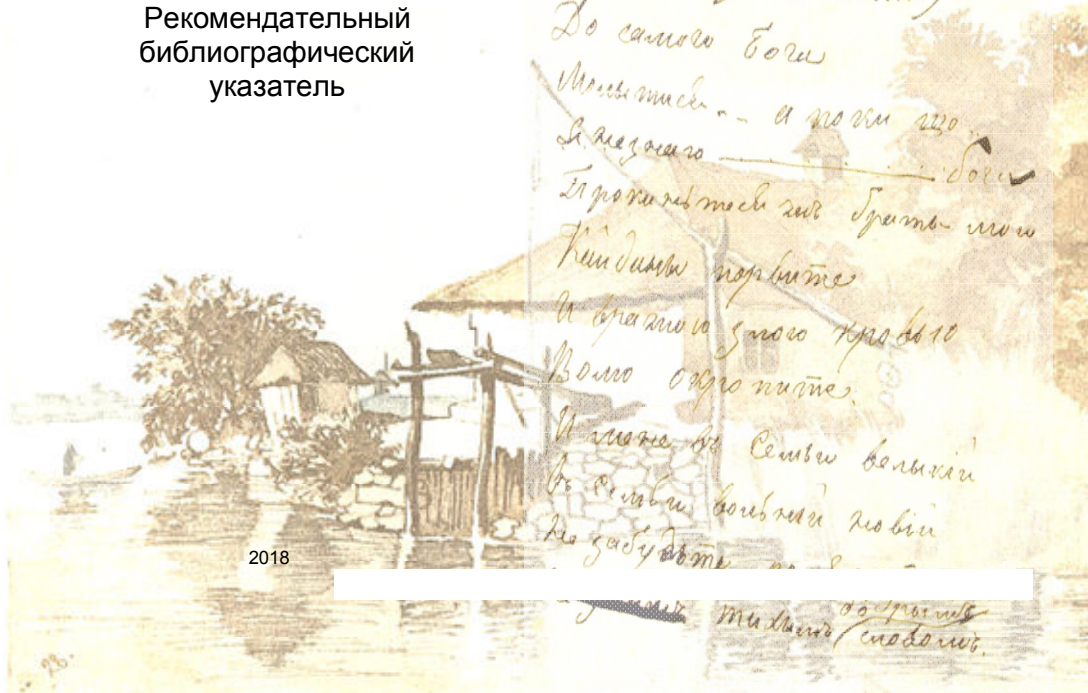 Рекомендательный
библиографический
указатель
До самого Бога
Молытися -- а поки що
Я незнаю бога
Кайданы порвите
И вражою злою кровью
Волю окропите.
И мене въ Семьи великій
Въ семьи вольній новій
Не забудьте
тихымъ словомъ.
2018